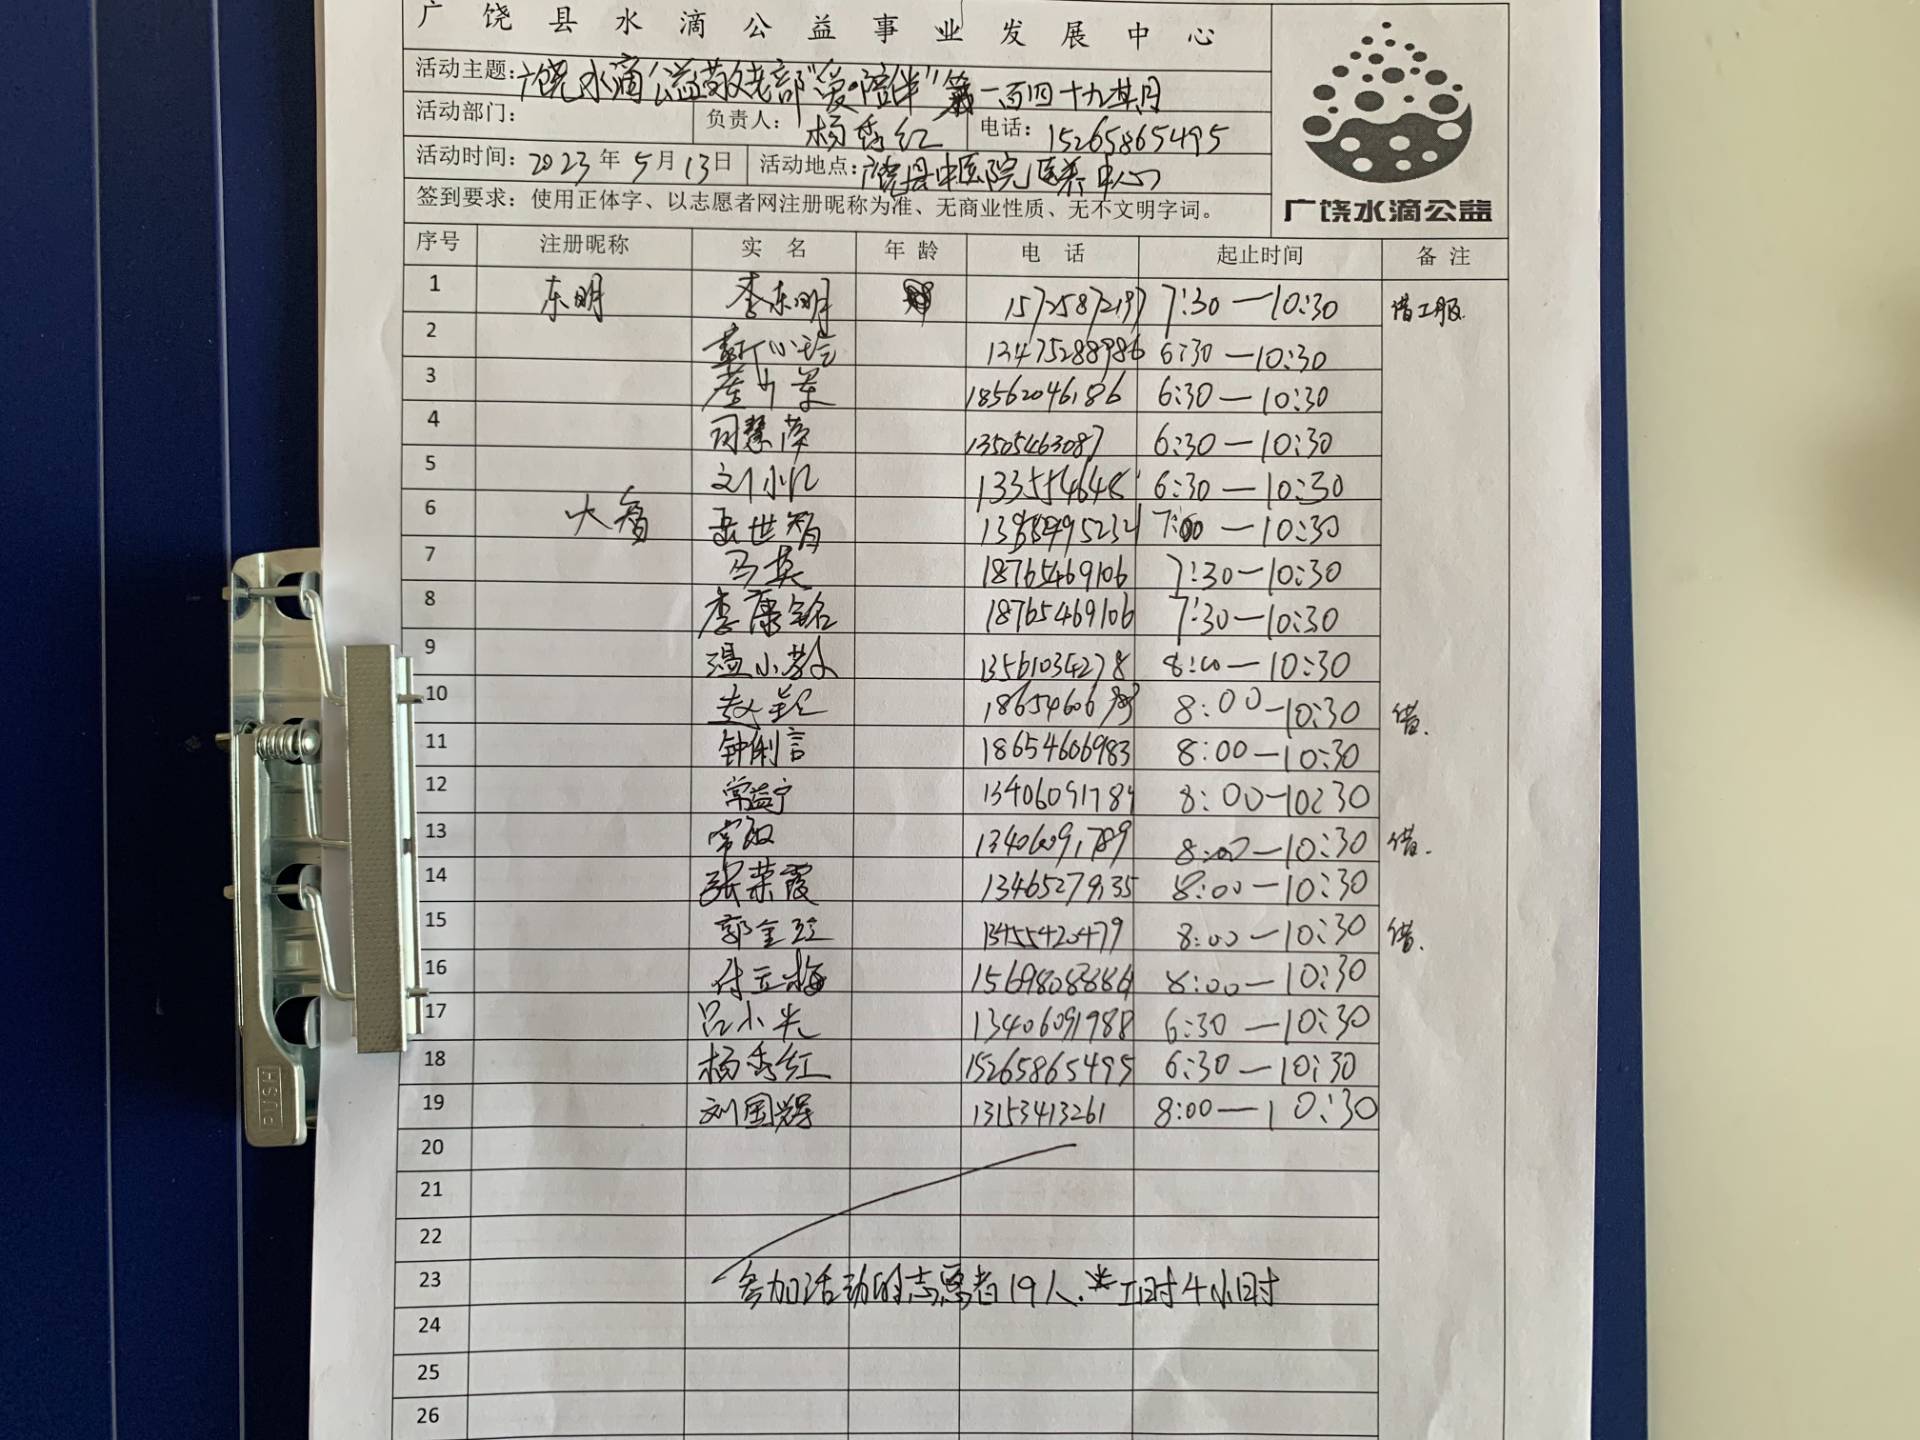 广饶县水滴公益事业发展中心
活动主题：广饶水滴公益敬老部“爱·陪伴”第一百四十九期月
活动部门： 负责人：杨秀红 电话：15265865495
活动时间：2023年5月13日 活动地点：广饶县中医院医养中心
签到要求：使用正体字、以志愿者网注册昵称为准、无商业性质、无不文明字词。
广饶水滴公益
序号 注册昵称 实名 年龄 电话 起止时间 备注
1 东明 李东明 15725872197 7:30—10:30 借工服.
2 13475288986 6:30—10:30
3 18562046186 6:30—10:30
4 司慧萍 13505463087 6:30—10:30
5 刘小忆 6:30—10:30
6 大智 岳世智 7:00—10:30
7 马英 18765469106 7:30—10:30
8 李康铭 18765469106 7:30—10:30
9 温小教 13561034278 8:00—10:30
10 8:00—10:30 借.
11 钟俐言 18654606983 8:00—10:30
12 常益宁 13406091789 8:00—10:30
13 常敏 13406091789 8:00—10:30 借.
14 张荣霞 13465279135 8:00—10:30
15 郭金玲 13455420479 8:00—10:30 借.
16 付立梅 15698088886 8:00—10:30
17 吕小光 13406091988 6:30—10:30
18 杨秀红 15265865495 6:30—10:30
19 刘国辉 13153413261 8:00—10:30
20
21
22
23 参加活动的志愿者19人. 工时4小时
24
25
26
PUSH